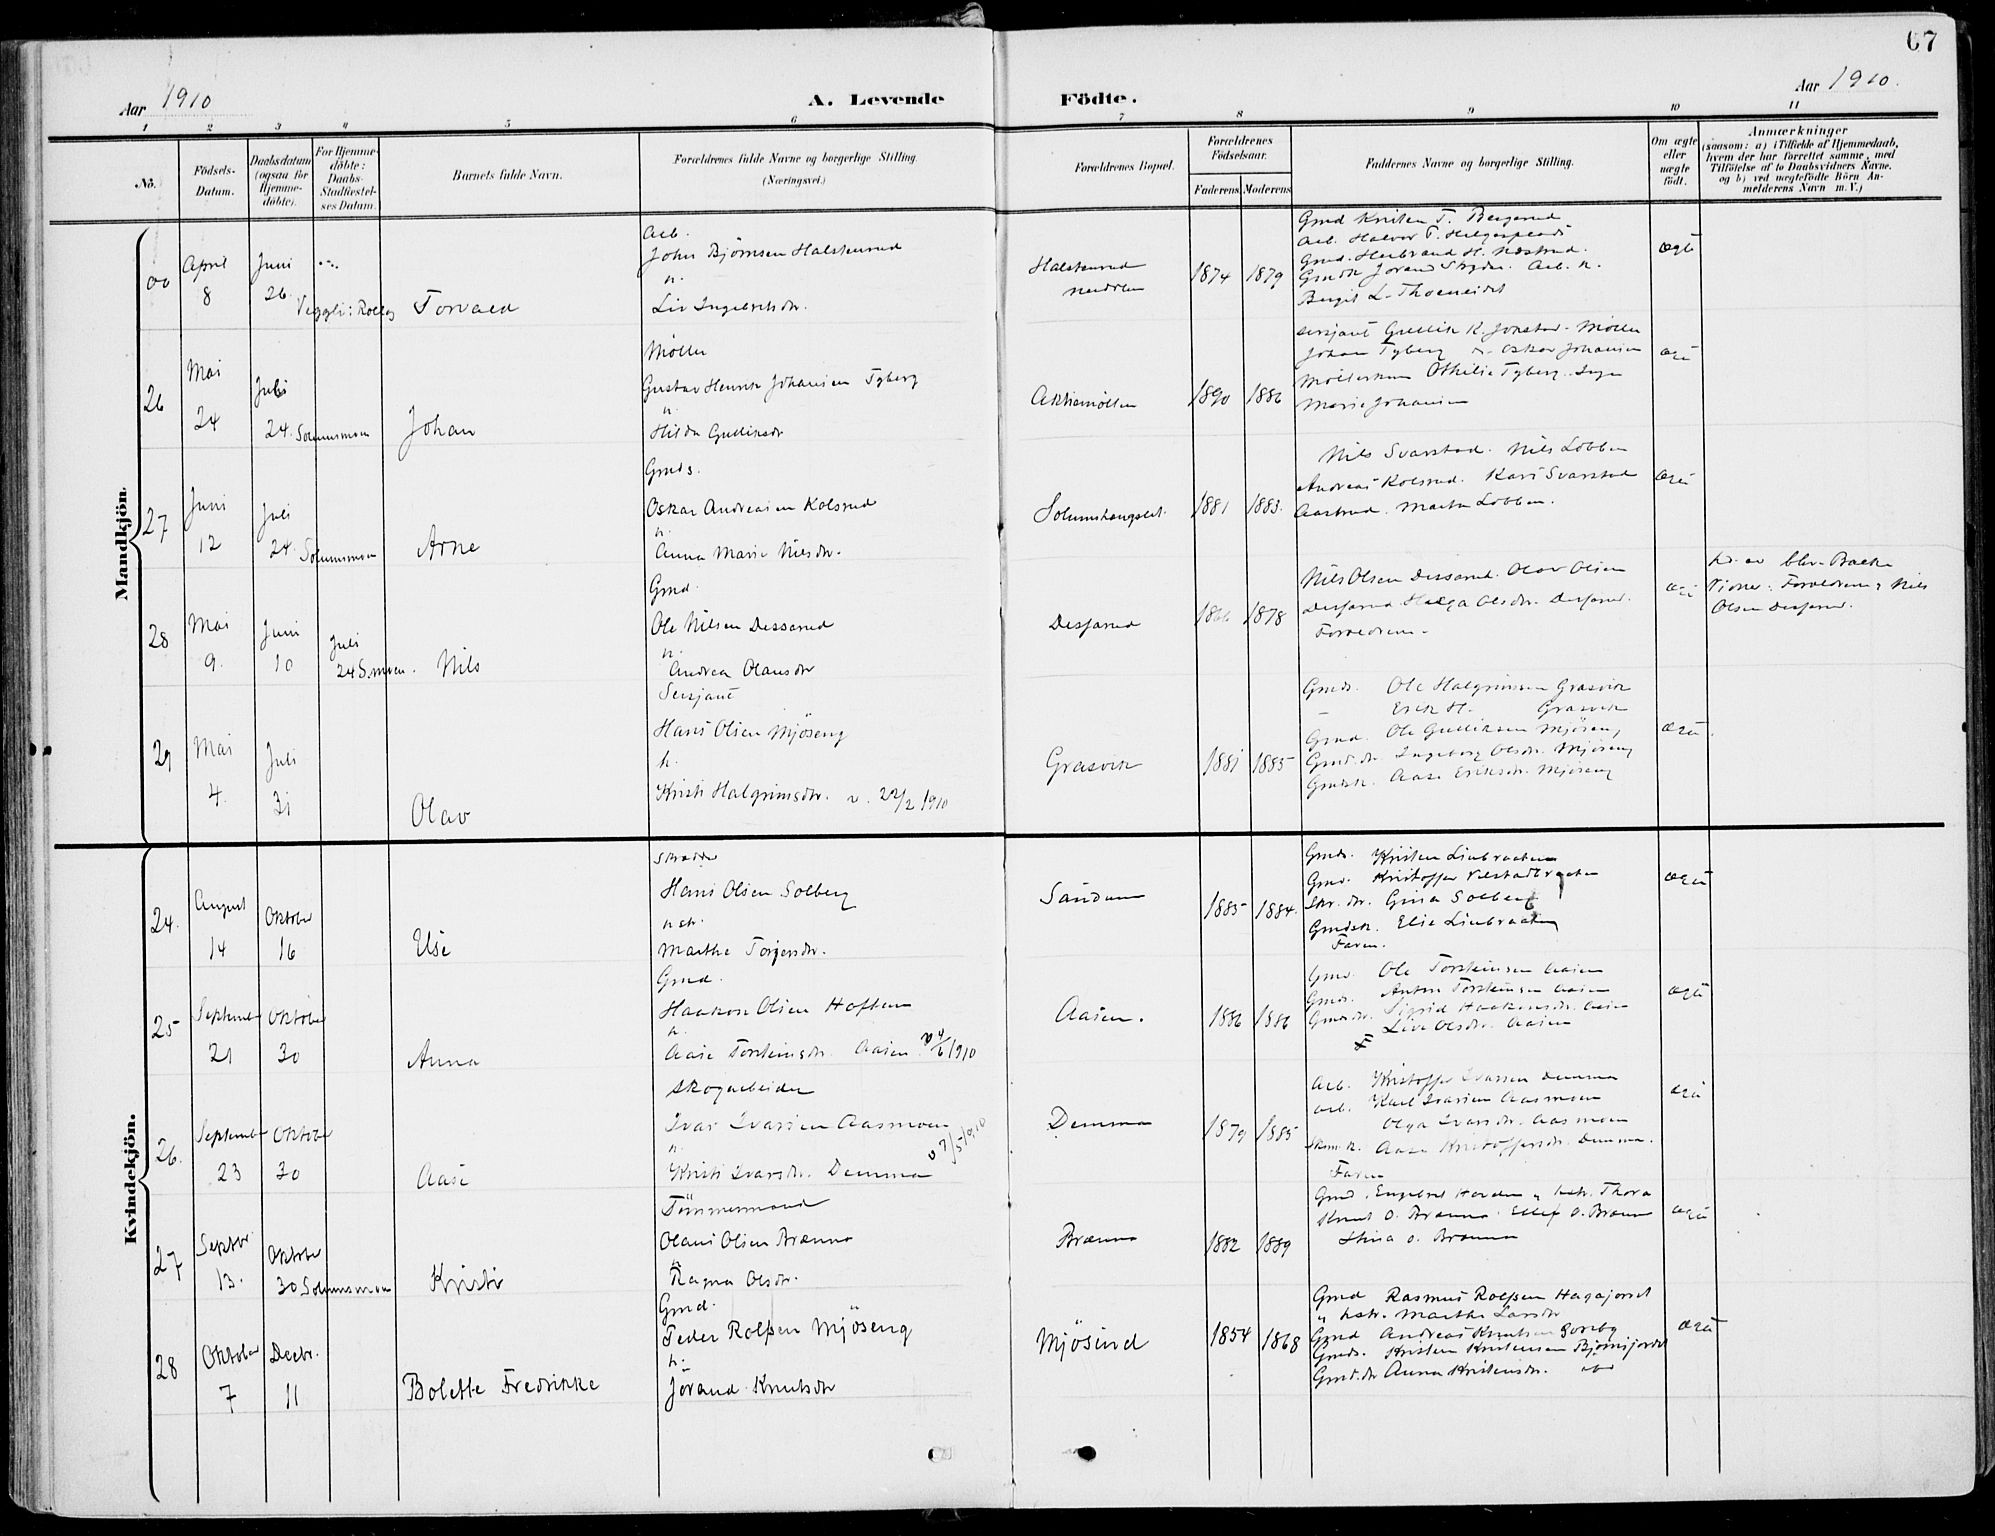 67
Aar 1910
A. Levende Födte.
Aar 1910.
1 2 3 4 5 6 7 8 9 10 11
No.
Födsels-Datum.
Daabsdatum (ogsaa for Hjemme-döbte).
For Hjemme-döbte: Daabs-Stadfæstel-ses Datum.
Barnets fulde Navn.
Forældrenes fulde Navne og borgerlige Stilling.
(Næringsvei.)
Forældrenes Bopæl.
Forældrenes Födselsaar.
Faderens Moderens
Faddernes Navne og borgerlige Stilling.
Om ægte eller uægte födt.
Anmærkninger
(saasom: a) i Tilfælde af Hjemmedaab,
hvem der har forrettet samme, med
Tilföielse af to Daabsvidners Navne.
og b) ved uægtefödte Börn An-
melderens Navn m. V.)
Mandkjön.
April 8
Juni 26.
Veggli: Rollag
Torvald
Arb.
John Björnsen Halstensrud
h.
Liv Ingebretsdr.
Halstensrud
1874 1879
Gmd Kristen T. Bergerud
Arb. Halvor T.
Gmd. Herbrand H.
Birgit L.
ægte
26
Mai 24
Juli 24. Solumsmoen
Johan
Möller
Gustav Henrik Johansen Tyberg
h.
Hilda Gulliksdr
Aktiemöllen
1890 1886
Sersjant Gullik K. Jonstad - Möller
Johan Tyberg - Oskar Johansen
Möllerkone Othilie Tyberg.
Marie Johansen
ægte
27
Juni 12
Juli 24. Solumsmoen
Arne
Gmds.
Oskar Andreasen Kolsrud
h.
Anna Marie Nilsdr.
Solumshaugslet.
1881 1883.
Nils Svarstad. Nils Löbben
Andreas Kolsrud. Kari Svarstad
Marta Löbben.
ægte
28
Mai 9.
Juni 10
Juli 24 S.moen.
Nils
Gmd.
Ole Nilsen Desserud
h.
Andrea Olausdr
Desserud
1866 1878
Nils Olsen Desserud. Olav Olsen
Desserud Helga Olsdr. Desserud.
Forældrene.
ægte
Vidner: Forældrene og Nils
Olsen Desserud.
29
Mai 4.
Juli 31
Olav
Sersjant
Hans Olsen Mjöseng
h.
Kristi Halgrimsdr. v. 22/2 1910
Grasvik
1881 1885
Gmds. Ole Halgrimsen Grasvik
Erik H. Grasvik
Gmd. Ole Gulliksen Mjöseng
Gmd.dr. Ingeborg Olsdr. Mjöseng
Gmdsk. Aase Eriksdr. Mjöseng
ægte.
Kvindekjön.
24.
August 14
Oktober 16
Else
Skrædder
Hans Olsen Solberg
hstr.
Marthe Torgersdr.
Sandum
1885 1884.
Gmds. Kristen Liebraaten
Gmd. Kristoffer
Skr. dr. Gina Solberg
Gmdsk. Elie Liebraaten
Faren.
ægte
25
September 21
Oktober 30
Anna
Gmd.
Haakon Olsen Haftun
h.
Aase Torsteinsdr. Aasen v 4/6 1910
Aasen.
1886 1886
Gmd. Ole Torsteinsen Aasen
Gmds. Anton Torsteinsen Aasen
Gmd.dr. Sigrid Haakensdr. Aasen
Live Olsdr. Aasen
ægte
26.
September 23
Oktober 30
Aase
Skogarbeider
Ivar Ivarsen Aasmoen
h.
Kristi Ivarsdr. Demma v 7/5 1910
Demma
1879 1885
Arb. Kristoffer Ivarsen Demma
Arb. Karl Ivarsen Aasmoen
Olga Ivarsdr. Aasmoen
Aase Kristoffersdr. Demma.
Faren
ægte
27
Septbr. 13.
Oktober 30 Solumsmoen
Kristi
Tömmermand
Olaus Olsen Brænna
h
Ragna Olsdr.
Brænna
1882 1889
Gmd. Engebret Horden og hstr. Thora
Knut O. Brænna Ellef O. Brænna
Stina O. Brænna
ægte
28
Oktober 7
Decbr. 11
Bolette Fredrikke
Gmd.
Peder Rolfsen Mjöseng
h.
Jörand Knutsdr
Mjösund
1854 1868
Gmd Rasmus Rolfsen Hagajordet
" hstr. Marthe Larsdr
Gmd Andreas Knutsen Goreby
Gmds. Kristen Kristensen Björnsjordet
Gmd.dr Anna Kristensdr.
ægte